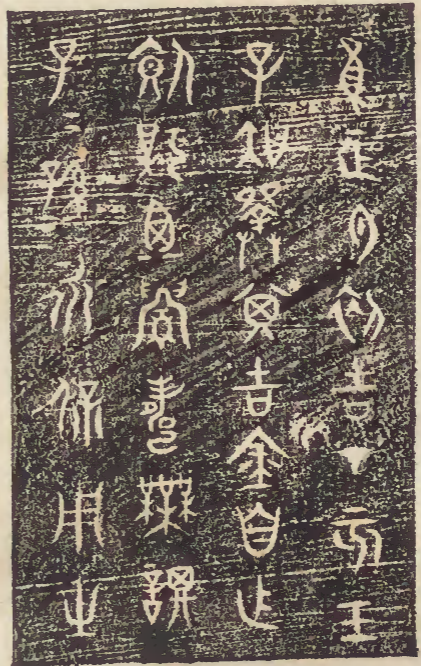 隹正月初吉丁亥王
子吳擇其吉金自乍
飤鼾其眉壽無諆
子〻孫永保用之